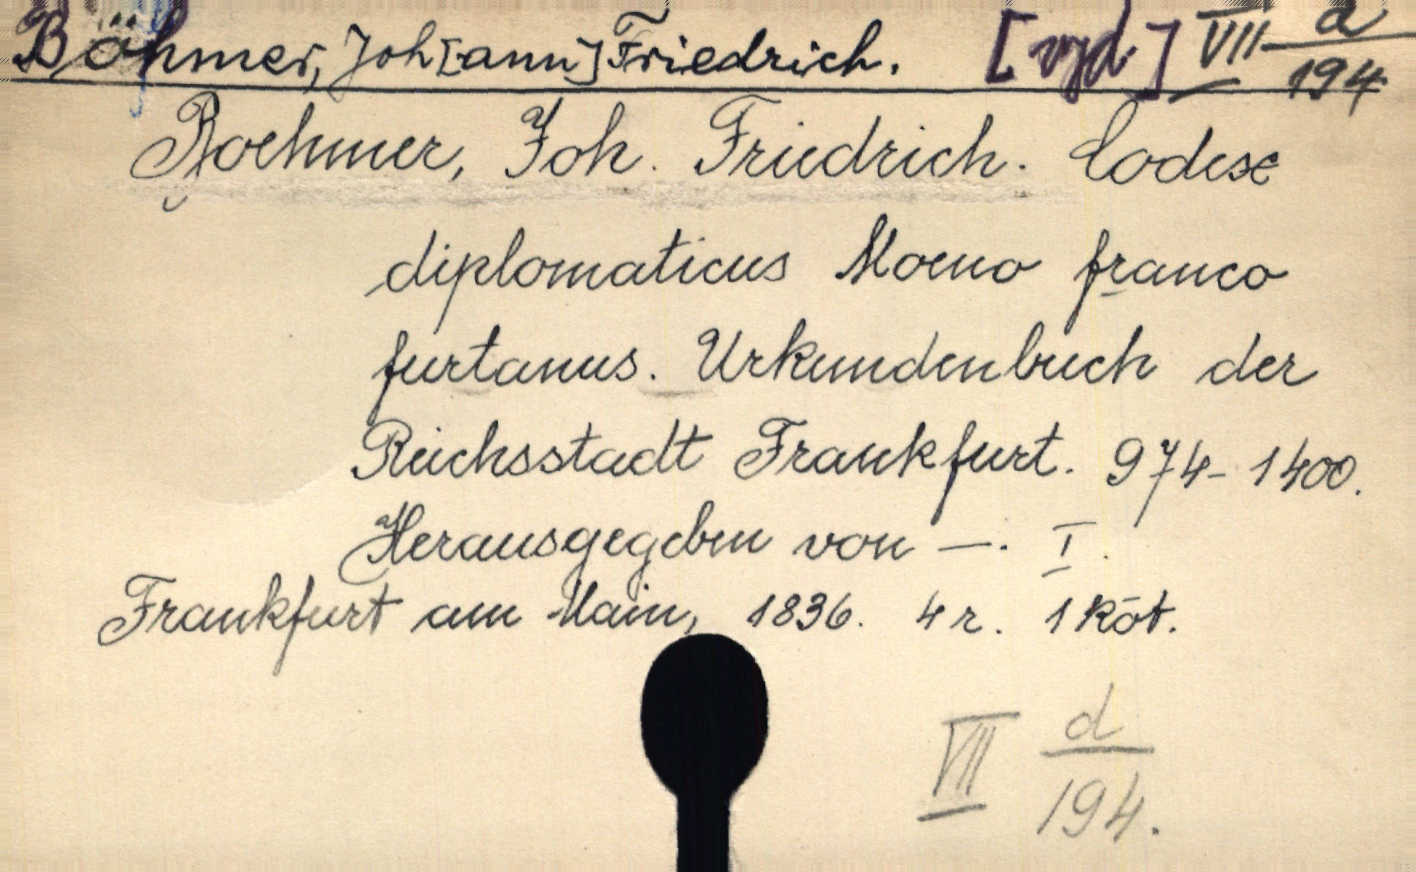 Böhmer, Joh[ann] Friedrich. VII d/194
Boehmer, Joh. Friedrich. Codex
diplomaticus Moeno franco
furtanus. Urkundenbuch der
Reichsstadt Frankfurt. 974-1400.
Herausgegeben von —. I.
Frankfurt am Main, 1836. 4 r. 1 köt.
VII d/194.